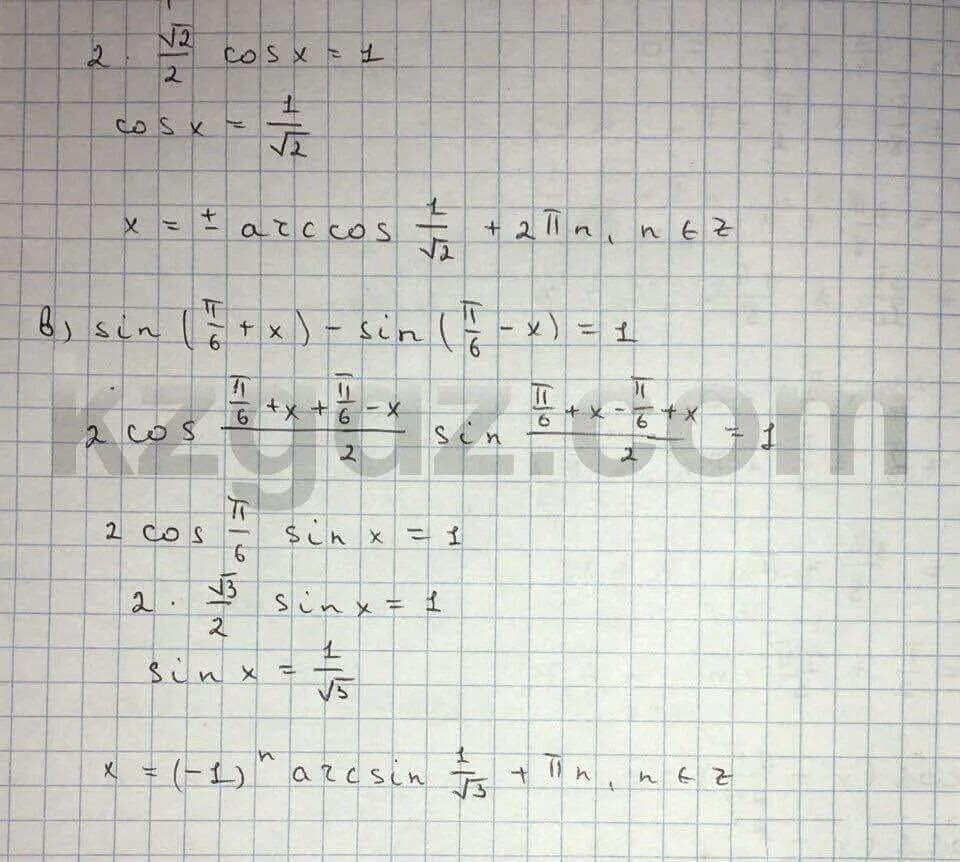 2 · √2/2 cos x = 1
cos x = 1/√2
x = ± arccos 1/√2 + 2πn, n ∈ Z
в) sin (π/6 + x) - sin (π/6 - x) = 1
2 cos (π/6 + x + π/6 - x)/2 sin (π/6 + x - π/6 + x)/2 = 1
kzgdz.com
2 cos π/6 sin x = 1
2 · √3/2 sin x = 1
sin x = 1/√3
x = (-1)^n arcsin 1/√3 + πn, n ∈ Z